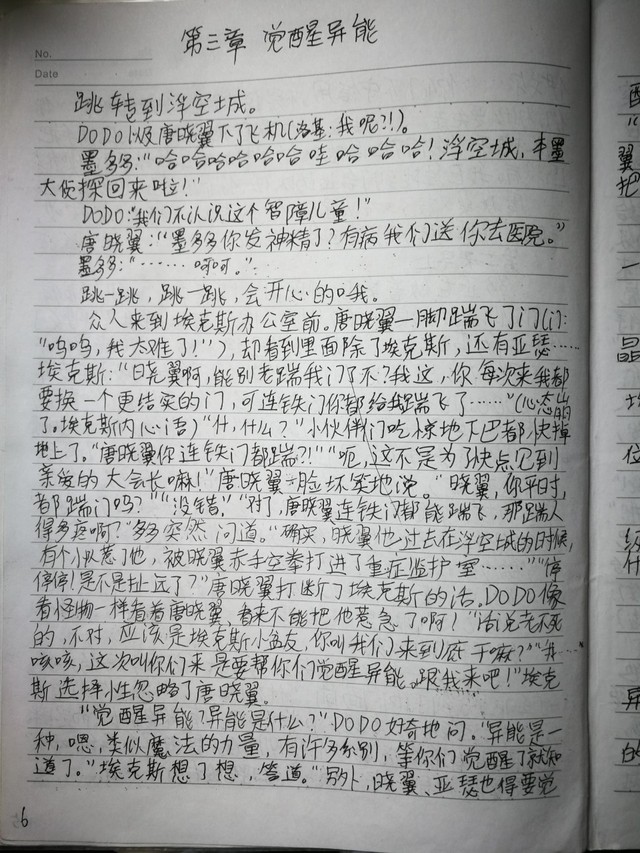 No.
Date
第三章 觉醒异能
跳转到浮空城。
DODO以及唐晓翼下了飞机(洛基:我呢?!)。
墨多多:“哈哈哈哈哈哈哇哈哈哈!浮空城,本墨
大侦探回来啦!”
DODO:“我们不认识这个智障儿童!”
唐晓翼:“墨多多你发神精了?有病我们送你去医院。”
墨多多:“……呵呵。”
跳一跳,跳一跳,会开心的哦。
众人来到埃克斯办公室前。唐晓翼一脚踹飞了门(门:
“呜呜,我太难了!”),却看到里面除了埃克斯,还有亚瑟……
埃克斯:“晓翼啊,能别老踹我门了不?我这,你每次来我都
要换一个更结实的门,可连铁门你都给我踹飞了……”(心态崩
了。埃克斯内心语)“什,什么?”小伙伴们吃惊地下巴都快掉
地上了。“唐晓翼你连铁门都踹?!”“呃,这不是为了快点见到
亲爱的大会长嘛!”唐晓翼一脸坏笑地说。“晓翼,你平时,
都踹门吗?”“没错。”“对了,唐晓翼连铁门都能踹飞,那踹人
得多疼啊?”多多突然问道。“确实,晓翼他过去在浮空城的时候,
有个小队惹了他,被晓翼赤手空拳打进了重症监护室……”“停
停停!是不是扯远了?”唐晓翼打断了埃克斯的话。DODO像
看怪物一样看着唐晓翼,看来不能把他惹急了啊!“话说老不死
的,不对,应该是埃克斯小盆友,你叫我们来到底干嘛?”“
咳咳,这次叫你们来是要帮你们觉醒异能。跟我来吧!”埃克
斯选择性忽略了唐晓翼。
“觉醒异能?异能是什么?”DODO好奇地问。“异能是一
种,嗯,类似魔法的力量,有许多分别,等你们觉醒了就知
道了。”埃克斯想了想,答道。“另外,晓翼、亚瑟也得要觉
6